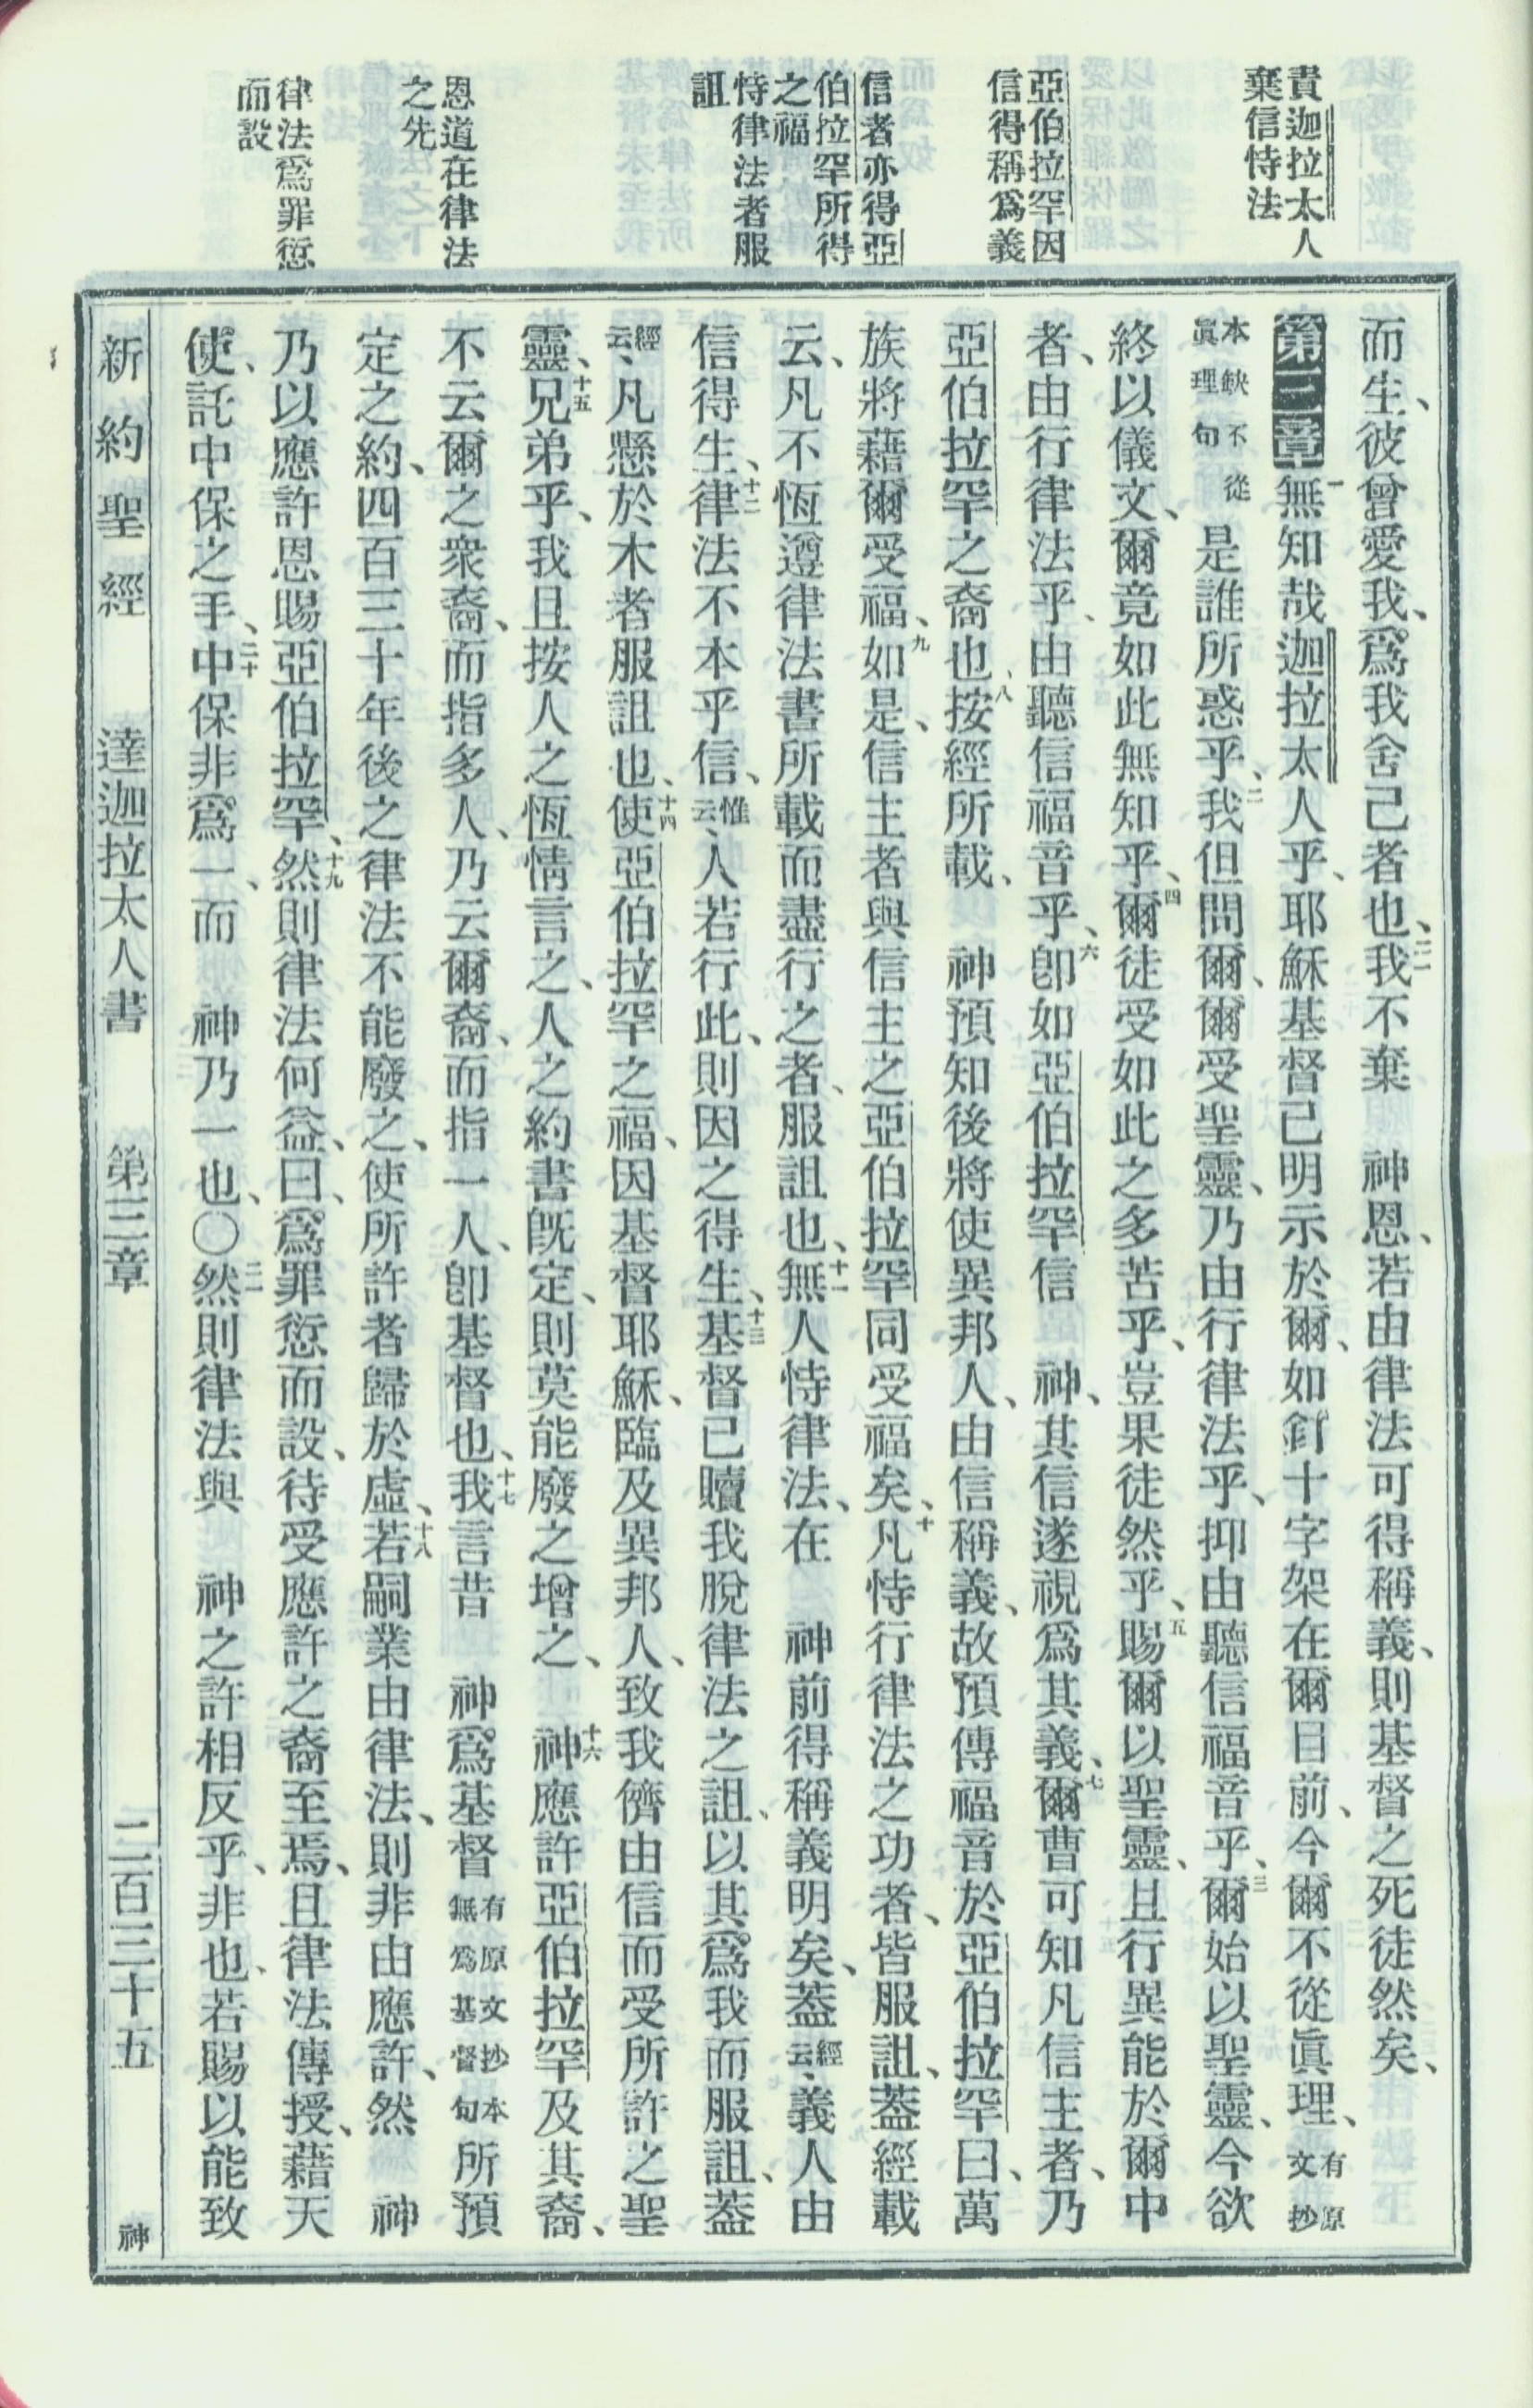 責迦拉太人
棄信恃法
亞伯拉罕因
信得稱爲義
信者亦得亞
伯拉罕所得
之福
恃律法者服
詛
恩道在律法
之先
律法爲罪愆
而設
而生、彼曾愛我、爲我舍己者也、二一我不棄　神恩、若由律法可得稱義、則基督之死徒然矣、
第三章一無知哉迦拉太人乎、耶穌基督已明示於爾、如釘十字架在爾目前、今爾不從眞理、有原文抄
本缺不從眞理句是誰所惑乎、二我但問爾、爾受聖靈、乃由行律法乎、抑由聽信福音乎、三爾始以聖靈、今欲
終以儀文、爾竟如此無知乎、四爾徒受如此之多苦乎、豈果徒然乎、五賜爾以聖靈、且行異能於爾中
者、由行律法乎、由聽信福音乎、六卽如亞伯拉罕信　神、其信遂視爲其義、七爾曹可知凡信主者、乃
亞伯拉罕之裔也、八按經所載、　神預知後將使異邦人、由信稱義、故預傳福音於亞伯拉罕曰、萬
族將藉爾受福、九如是、信主者與信主之亞伯拉罕同受福矣、十凡恃行律法之功者、皆服詛、蓋經載
云、凡不恆遵律法書所載而盡行之者、服詛也、十一無人恃律法、在　神前得稱義明矣、蓋經云、義人由
信得生、十二律法不本乎信、惟云、人若行此、則因之得生、十三基督已贖我脫律法之詛、以其爲我而服詛、蓋
經云、凡懸於木者服詛也、十四使亞伯拉罕之福、因基督耶穌、臨及異邦人、致我儕由信而受所許之聖
靈、十五兄弟乎、我且按人之恆情言之、人之約書旣定、則莫能廢之增之、十六神應許亞伯拉罕及其裔、
不云爾之衆裔、而指多人、乃云爾裔、而指一人、卽基督也、十七我言昔　神爲基督有原文抄本無爲基督句所預
定之約、四百三十年後之律法不能廢之、使所許者歸於虛、十八若嗣業由律法、則非由應許、然　神
乃以應許恩賜亞伯拉罕、十九然則律法何益、曰、爲罪愆而設、待受應許之裔至焉、且律法傳授、藉天
使、託中保之手、二十中保非爲一、而　神乃一也、○二一然則律法與　神之許相反乎、非也、若賜以能致
新約聖經　達迦拉太人書　第三章　二百三十五　神